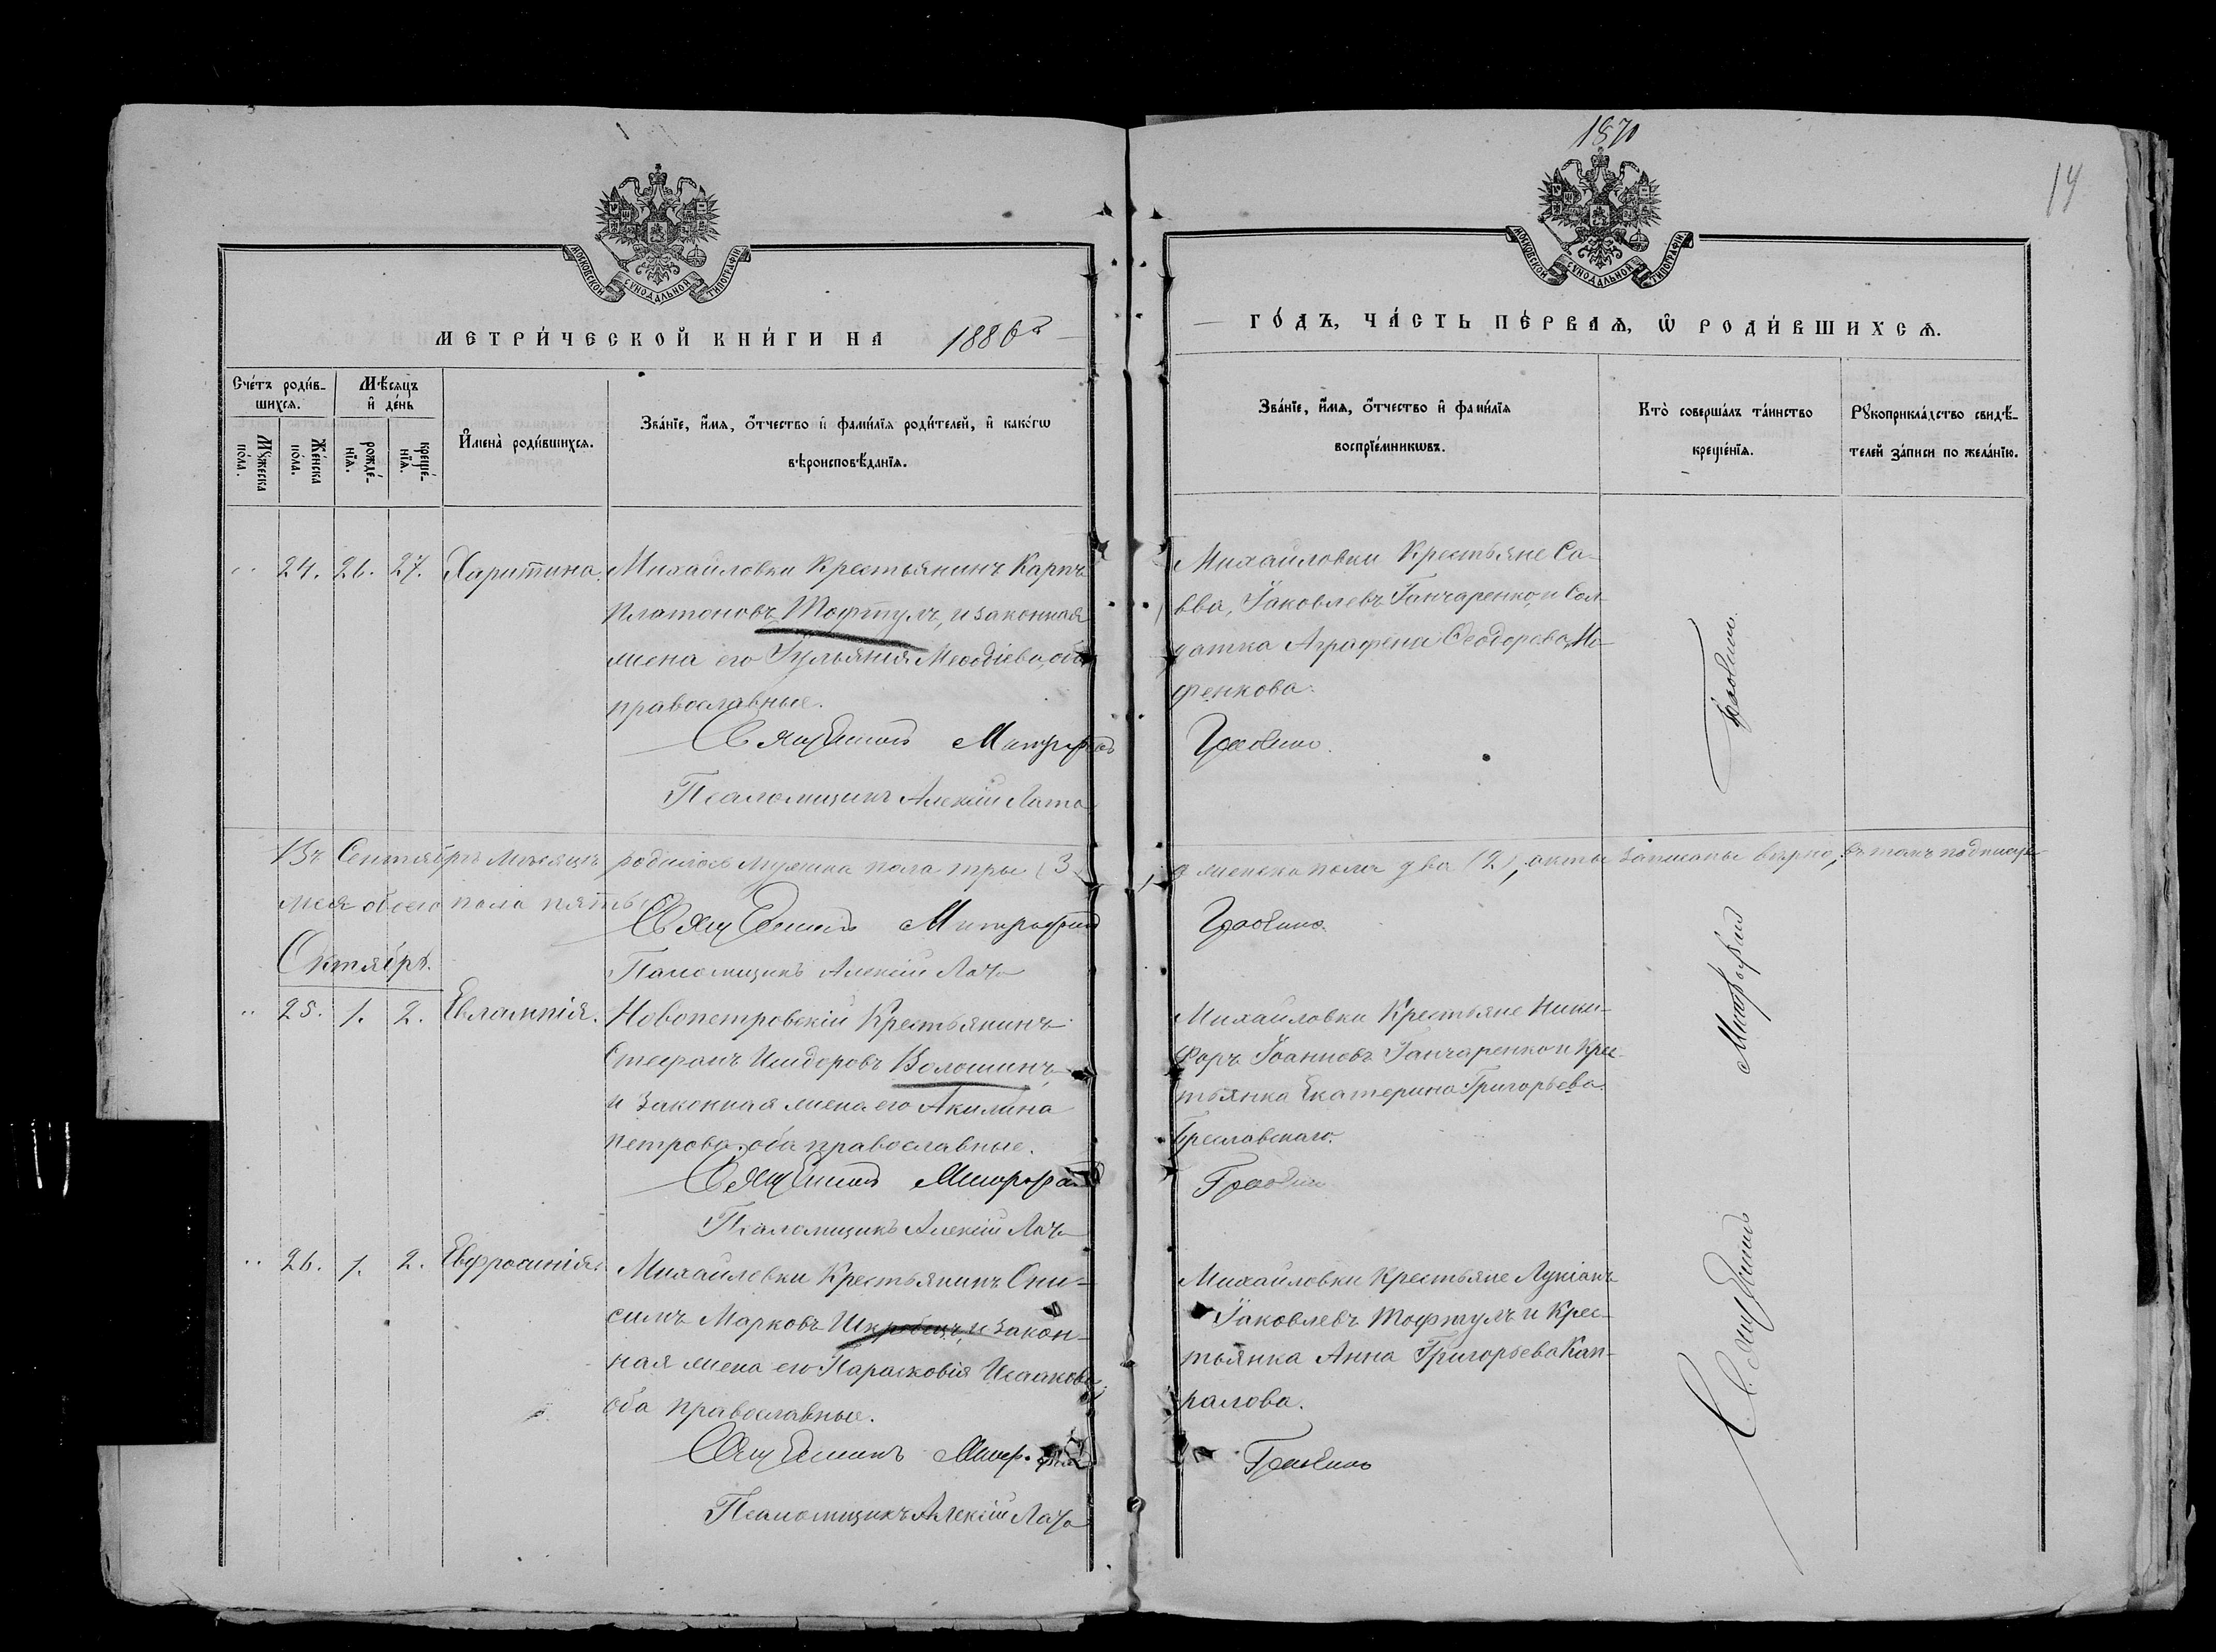 1870
14
МОСКОВСКОЙ СѴНОДАЛЬНОЙ ТИПОГРАФІИ
МОСКОВСКОЙ СѴНОДАЛЬНОЙ ТИПОГРАФІИ
МЕТРИ́ЧЕСКОЙ КНИ́ГИ НА 1886й
ГО́ДЪ, ЧА́СТЬ ПЕ́РВАѦ, Ѡ҆ РОДИ́ВШИХСѦ.
Сче́тъ роди́в-
шихсѧ.
Мѣ́сѧцъ
и҆ де́нь
Мꙋ́жеска
по́ла.
Же́нска
по́ла.
рожде́-
нїѧ.
креще́-
нїѧ.
И҆мена̀ роди́вшихсѧ.
Зва́нїе, и҆́мѧ, ѻ҆́тчество и҆ фами́лїѧ роди́телей, и҆ како́гѡ
вѣроисповѣ́данїѧ.
Зва́нїе, и҆́мѧ, ѻ҆́тчество и҆ фами́лїѧ
воспрїе́мникѡвъ.
Кто̀ соверша́лъ та́инство
креще́нїѧ.
Рꙋкоприкла́дство свидѣ́-
телей за́писи по жела́нїю.
„ 24. 26. 27. Харитина.
Михайловки Крестьянинъ Карпъ
Платоновъ Шофтулъ, и законная
жена его Іульянія Меѳодіева, оба
православные.
Священникъ Митрофанъ
Псаломщикъ Алексій
Михайловки Крестьяне Са-
вва, Іаковлевъ Ганчаренко, и Сол-
датка Аграфена Ѳеодорова
Въ Сентябрѣ мѣсяцѣ родилось мужска пола три (3)
а женска пола два (2), акты записаны вѣрно, въ томъ
обоего пола пять.
Священникъ Митрофанъ
Псаломщикъ Алексій
Октябрь.
„ 25. 1. 2. Евлампія.
Новопетровскій Крестьянинъ
Стефанъ Исидоровъ Волошинъ,
и законная жена его Акилина
Петрова, оба православные.
Священникъ Митрофанъ
Псаломщикъ Алексій
Михайловки Крестьяне Ники-
форъ Іоанновъ Ганчаренко и Крес-
тьянка Екатерина Григорьева
„ 26. 1. 2. Евфросинія.
Михайловки Крестьянинъ Они-
симъ Марковъ и закон-
ная жена его Парасковія Исаакова,
оба православные.
Священникъ
Псаломщикъ Алексій
Михайловки Крестьяне Лукіанъ
Іаковлевъ Шофтулъ и Крес-
тьянка Анна Григорьева Кап-
ралова.
Священникъ
Митрофанъ